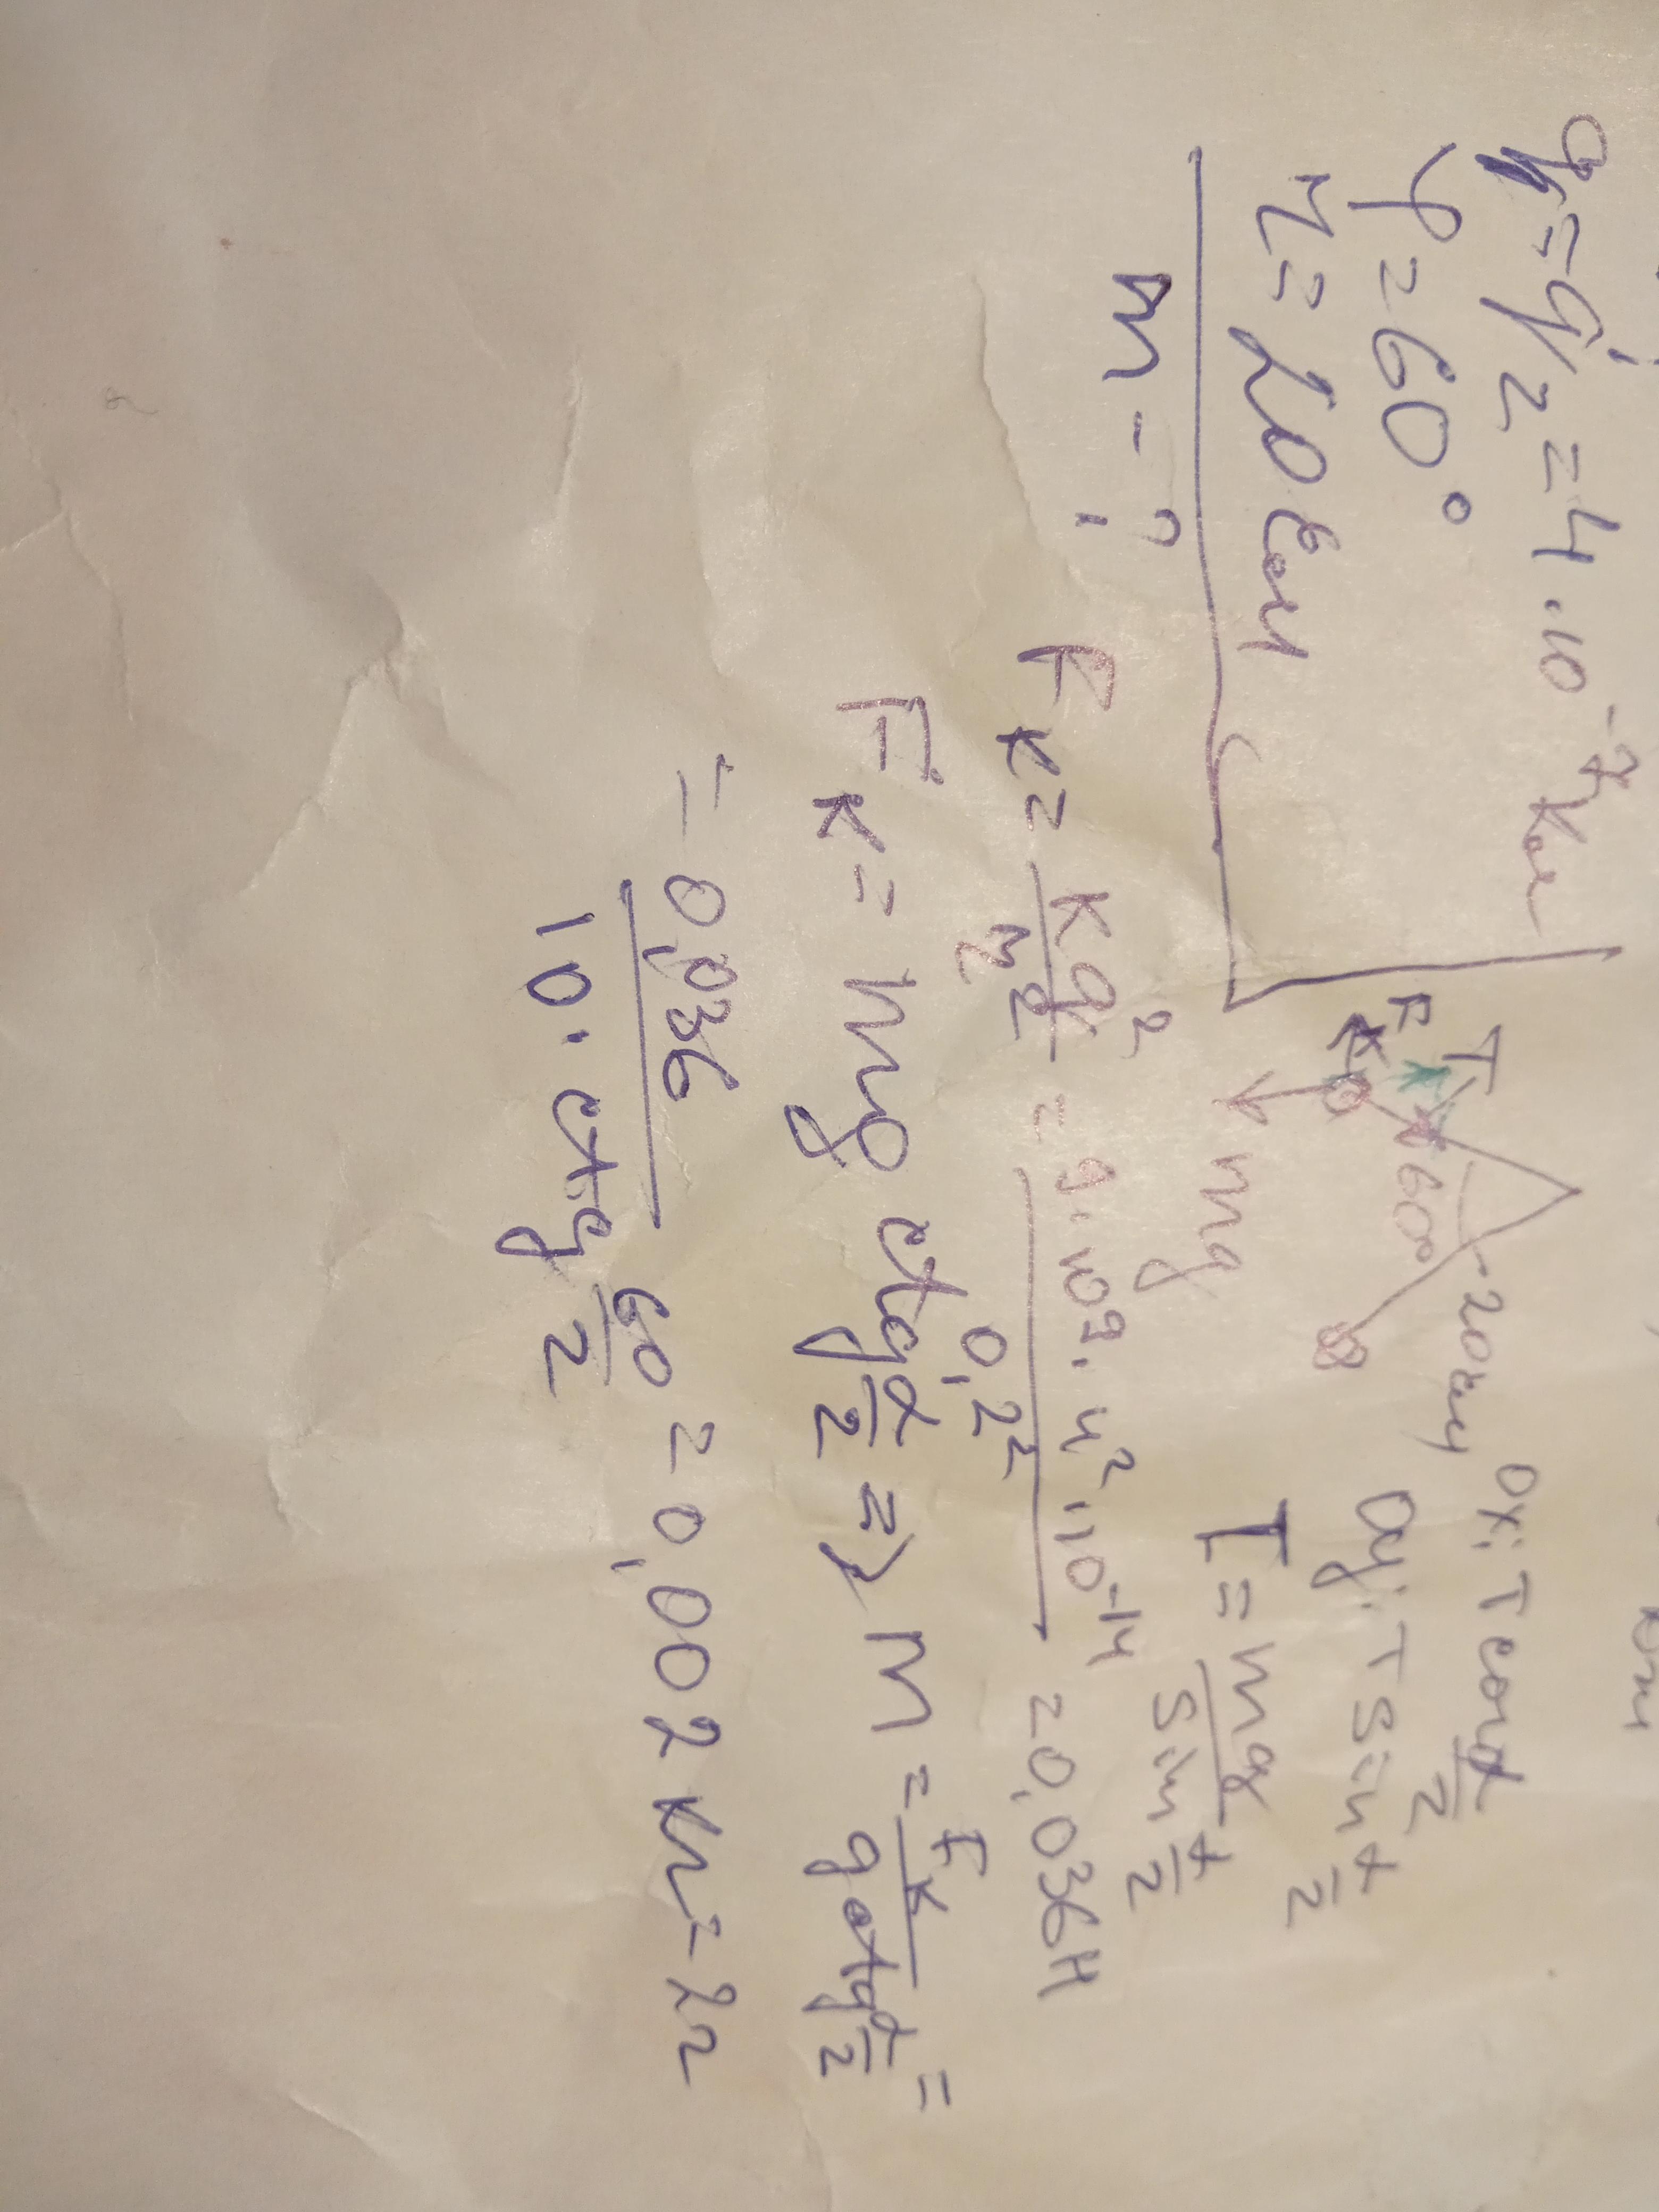 q₁ = q₂ = 4·10⁻⁷ Кл
φ = 60°
r = 20 см
m - ?
T
Fк
60°
20 см
mg
Ox: T cos α/2
Oy: T sin α/2
T = mg / sin α/2
Fк = kq² / r² = 9·10⁹·4²·10⁻¹⁴ / 0,2² = 0,036 Н
Fк = mg ctg α/2 => m = Fк / g ctg α/2 =
= 0,036 / 10·ctg 60/2 = 0,002 кг = 2 г